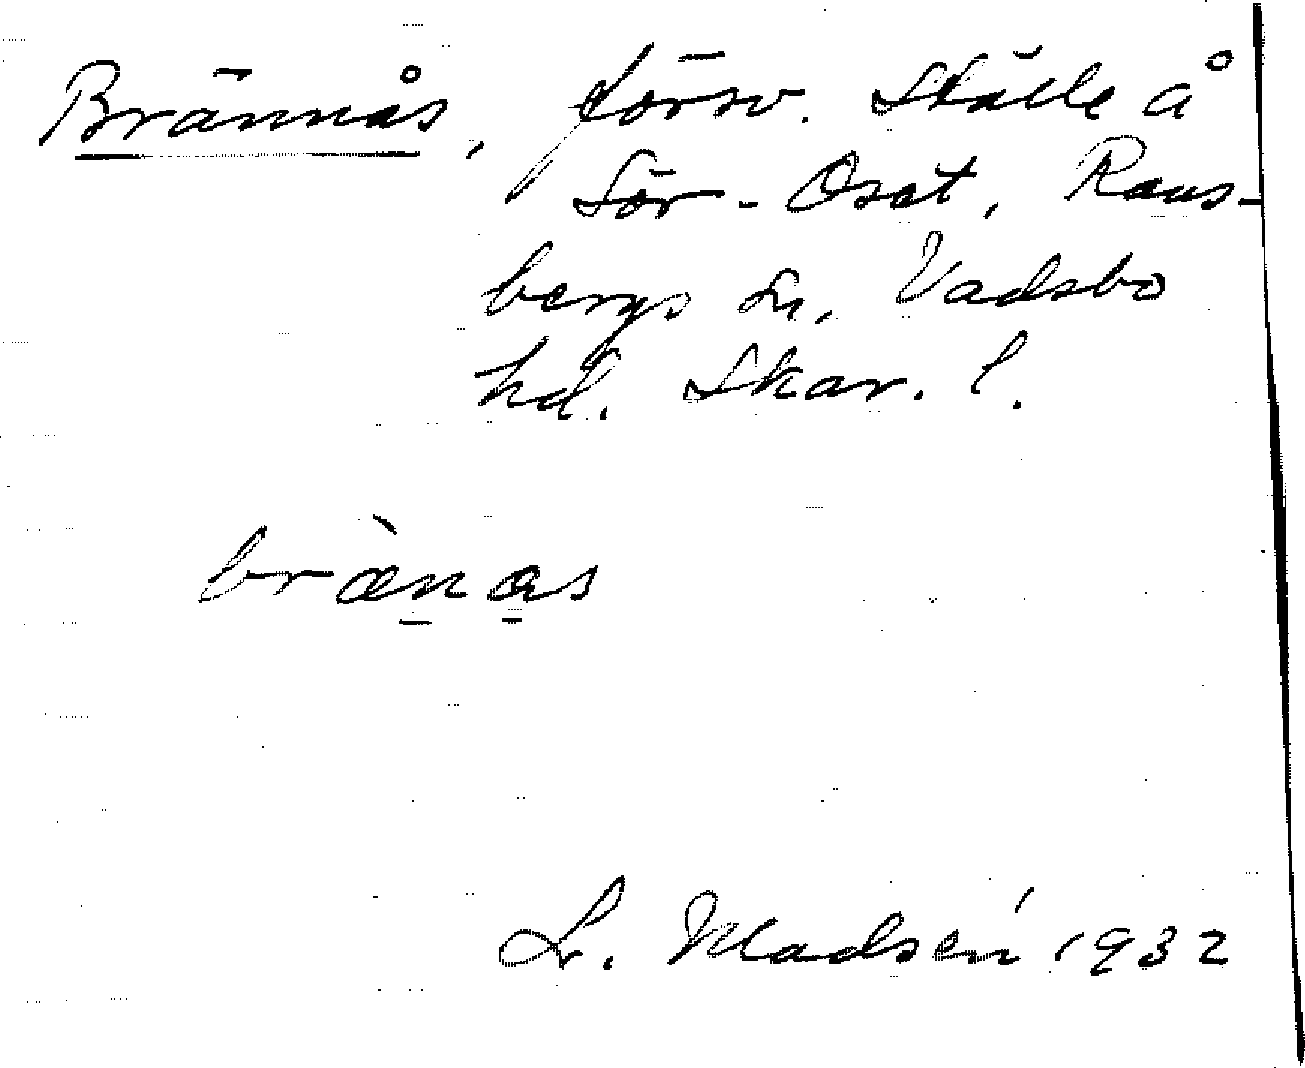 Brännås, försv. ställe å
Sör-Oset, Rans-
bergs sn, Vadsbo
hd. Skar. l.
brànas
L. Madsén 1932